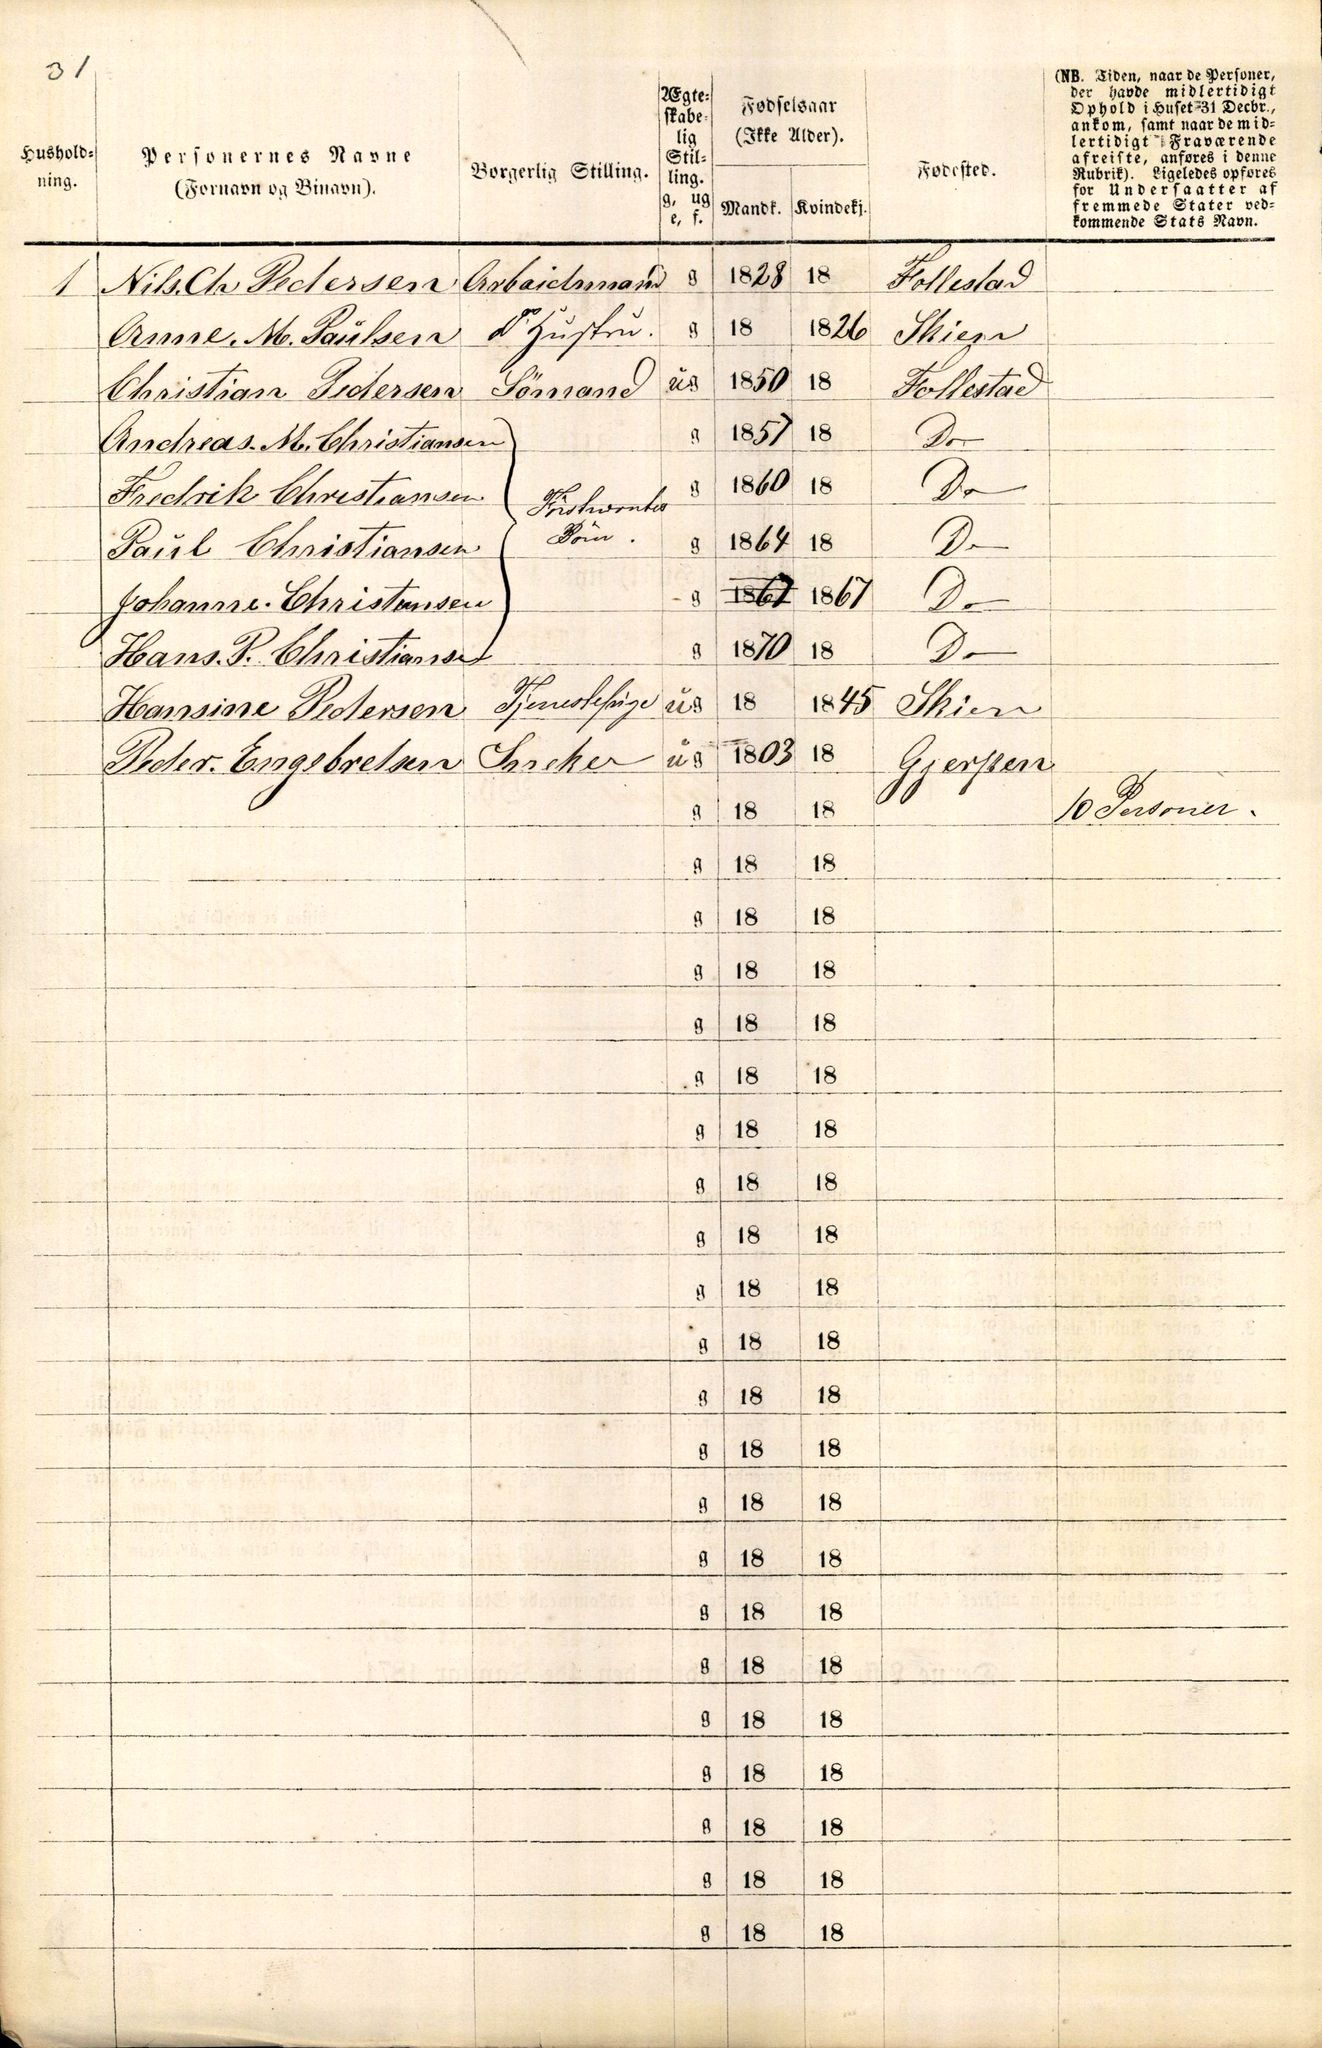 31
Hushold-
ning.
Personernes Navne
(Fornavn og Binavn).
Borgerlig Stilling.
Ægte-
skabe-
lig
Stil-
ling.
g, ug
e, f.
Fødselsaar
(Ikke Alder).
Mandk. Kvindekj.
Fødested.
(NB. Tiden, naar de Personer,
der havde midlertidigt
Ophold i Huset 31 Decbr.,
ankom, samt naar de mid-
lertidigt Fraværende
afreiste, anføres i denne
Rubrik). Ligeledes opføres
for Undersaatter af
fremmede Stater ved-
kommende Stats Navn.
1 Nils. Ch Pedersen Arbaidsmand g 1828 18 Follestad
Anne. M. Paulsen Do Hustru. g 18 1826 Skien
Christian Pedersen Sömand ug 1850 18 Follestad
Andreas. M. Christiansen g 1857 18 Do
Fredrik Christiansen g 1860 18 Do
Paul Christiansen g 1864 18 Do
Johanne. Christansen g 1867 1867 Do
Hans. P. Christianse g 1870 18 Do
Hansine Pedersen Tjenestepige ug 18 1845 Skien
Peder. Engebretsen Sneker ug 1803 18 Gjerpen
g 18 18 10 Personer.
g 18 18
g 18 18
g 18 18
g 18 18
g 18 18
g 18 18
g 18 18
g 18 18
g 18 18
g 18 18
g 18 18
g 18 18
g 18 18
g 18 18
g 18 18
g 18 18
g 18 18
g 18 18
g 18 18
g 18 18
g 18 18